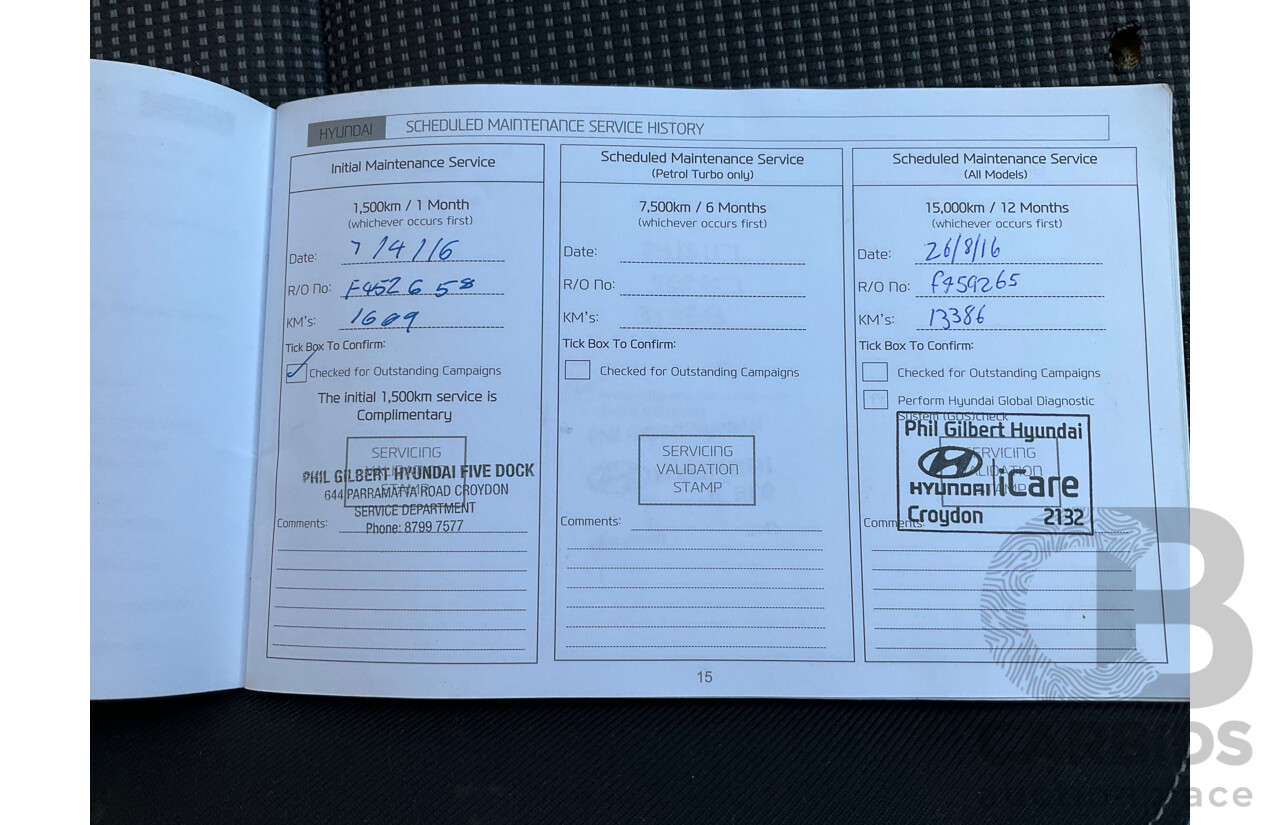 HYUNDAI SCHEDULED MAINTENANCE SERVICE HISTORY
Initial Maintenance Service
1,500km / 1 Month
(whichever occurs first)
Date: 7/4/16
R/O No: F452658
KM's: 1609
Tick Box To Confirm:
Checked for Outstanding Campaigns
The initial 1,500km service is
Complimentary
SERVICING
VALIDATION
STAMP
PHIL GILBERT HYUNDAI FIVE DOCK
644 PARRAMATTA ROAD CROYDON
SERVICE DEPARTMENT
Phone: 8799 7577
Comments:
Scheduled Maintenance Service
(Petrol Turbo only)
7,500km / 6 Months
(whichever occurs first)
Date:
R/O No:
KM's:
Tick Box To Confirm:
Checked for Outstanding Campaigns
SERVICING
VALIDATION
STAMP
Comments:
Scheduled Maintenance Service
(All Models)
15,000km / 12 Months
(whichever occurs first)
Date: 26/8/16
R/O No: F459265
KM's: 13386
Tick Box To Confirm:
Checked for Outstanding Campaigns
Perform Hyundai Global Diagnostic
System (GDS)check
SERVICING
VALIDATION
STAMP
Phil Gilbert Hyundai
HYUNDAI iCare
Croydon 2132
Comments:
15
CARBIDS